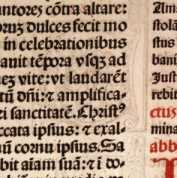 antores cōtra altare:
oruʒ dulces fecit mo
in celebrationibus
auit tēpora vsqʒ ad
ueʒ vite: vt laudarēt
tū dn̄i: ⁊ amplifica
ri sanctitatē. Christꝰ
ccata ipsius: ⁊ exal
uū cornu ipsius. Sa
bit aīam suā: ⁊ ī do
stol
stus
bani
Just
rebit
ctus
mina
abb